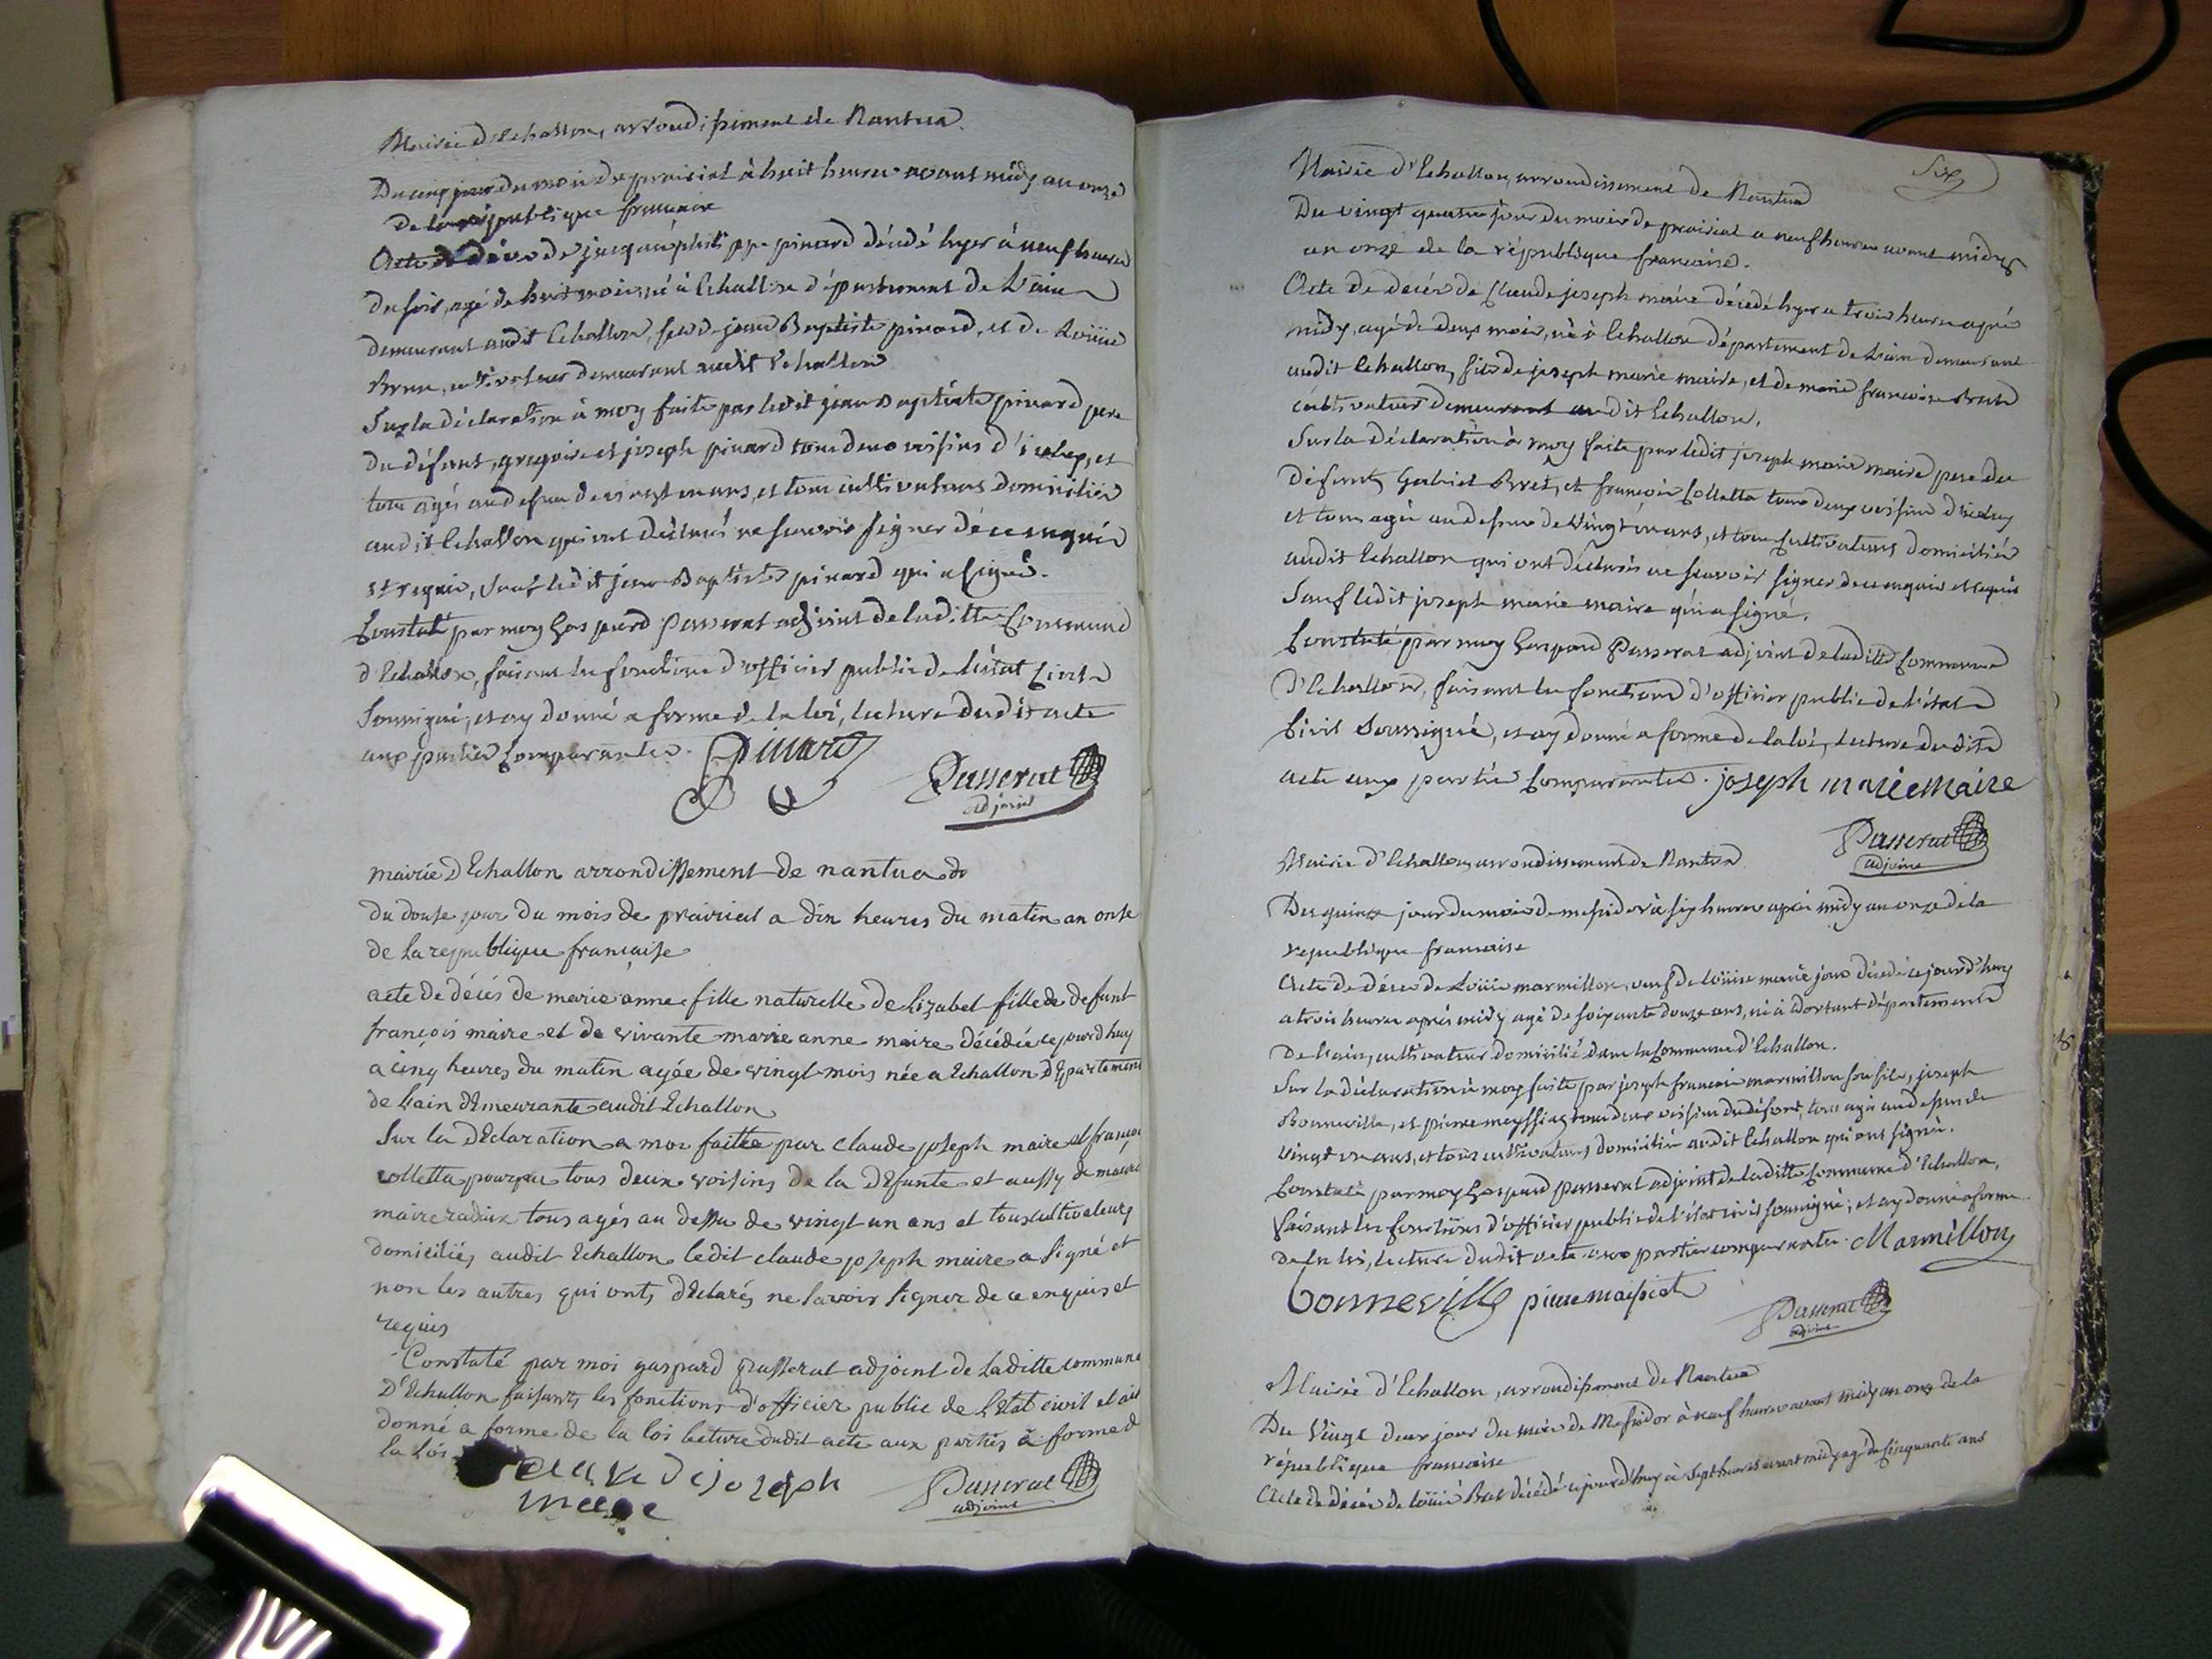 Mairie d'Echallon, arrondissement de Nantua
Du cinq jour du mois de prairial à huit heures avant midy an onze
de la république francaise
Acte de décès de jacque philippe pinard décédé hyer à neuf heures
du soir, agé de huit mois, né à Echallon département de L'ain
demeurant audit Echallon, fils de jean Baptiste pinard, et de Loüise
Brun, cultivateur demeurant audit Echallon
Sur la déclaration à moy faite par ledit jean Baptiste pinard pere
du défunt, gregoire et joseph pinard tous deux voisins d'icelluy, et
tous agés au dessus de vingt un ans, et tous cultivateurs domiciliés
audit Echallon qui ont déclaré ne scavoir signer de ce enquis
et requis, sauf ledit jean Baptiste pinard qui a signé.
Constaté par moy Gaspard Passerat adjoint de laditte Commune
d'Echallon, faisant les fonctions d'officier public de l'état Civil
soussigné, et ay donné a forme de la loi, lecture dudit acte
aux parties Comparantes. Pinard
Passerat
adjoint
mairie d'Echallon arrondissement de nantua
du douse jour du mois de prairial a dix heures du matin an onse
de la republique française
acte de décès de marie anne fille naturelle de Lizabel fille de defunt
françois maire et de vivante marie anne maire décédée cejourd'huy
a cinq heures du matin agée de vingt mois née a Echallon département
de L'ain demeurante audit Echallon
Sur la déclaration a moi faitte par claude joseph maire et françois
colletta tous deux voisins de la défunte et aussy de
maire tous agés au dessu de vingt un ans et tous cultivateurs
domiciliés audit Echallon ledit claude joseph maire a signé et
non les autres qui onts déclarés ne savoir signer de ce enquis et
requis
Constaté par moi gaspard passerat adjoint de laditte commune
d'Echallon faisants les fonctions d'officier public de l'Etat civil et ait
donné a forme de la loi lecture dudit acte aux parties a forme de
la loi
claude joseph
maire
Passerat
adjoint
Six
Mairie d'Echallon, arrondissement de Nantua
Du vingt quatre jour du mois de prairial a neuf heures avant midy
an onze de la république francaise.
Acte de décès de Claude joseph maire décédé hyer a trois heures après
midy, agé de deux mois, né à Echallon département de L'ain demeurant
audit Echallon, fils de joseph marie maire, et de marie francoise Bret
cultivateurs demeurant audit Echallon.
Sur la déclaration à moy faite par ledit joseph marie maire pere du
défunt, Gabriel Bret, et francois Colletta tous deux voisins d'icelluy
et tous agés au dessus de vingt un ans, et tous Cultivateurs domiciliés
audit Echallon qui ont déclarés ne scavoir signer de ce enquis et requis
Sauf ledit joseph marie maire qui a signé.
Constaté par moy Gaspard Passerat adjoint de laditte Commune
d'Echallon, faisant les fonctions d'officier public de l'état
Civil soussigné, et ay donné a forme de la loi, lecture dudit
acte aux parties Comparantes. joseph marie Maire
Passerat
adjoint
Mairie d'Echallon, arrondissement de Nantua
Du quinze jour du mois de messidor à six heures après midy an onze de la
republique francaise
Acte de décès de Loüis marmillon, veuf de loüise marie décédé cejourd'huy
a trois heures après midy agé de soixante douze ans, né à dortant département
de L'ain, cultivateur domicilié dans la Commune d'Echallon.
Sur la déclaration à moy faite par joseph francois marmillon son fils, joseph
Bonneville, et pierre meyssiat tous deux voisins du défunt, tous agés au dessus de
vingt un ans, et tous cultivateurs domiciliés audit Echallon qui ont signés.
Constaté par moy Gaspard passerat adjoint de laditte Commune d'Echallon,
faisant les fonctions d'officier public de l'état civil soussigné, et ay donné a forme
de la loi, lecture dudit acte aux parties comparantes. Marmillon
Bonneville pierre maissiat
Passerat
adjoint
Mairie d'Echallon, arrondissement de Nantua
Du Vingt deux jour du mois de Messidor à neuf heures avant midy an onze de la
république francaise
Acte de décès de loüis Bret décédé cejourd'huy à sept heures avant midy agé de Cinquante ans